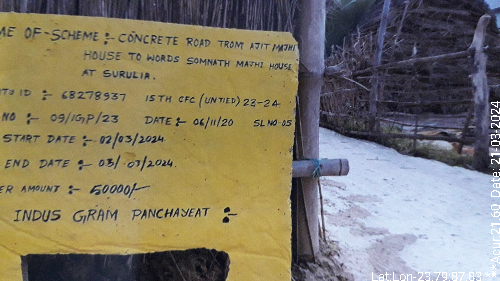 ME OF-SCHEME :- CONCRETE ROAD TROM AJIT MAJHI
HOUSE TO WORDS SOMNATH MAJHI HOUSE
AT SURULIA.
ID :- 68278937 15TH CFC (UNTIED) 23-24
NO :- 09/IGP/23 DATE :- 06/11/20 SL NO-05
START DATE :- 02/03/2024
END DATE :- 03/07/2024.
ER AMOUNT :- 50000/-
INDUS GRAM PANCHAYEAT :-
Date: 21-03-2024
LatLon-23.79,87.83